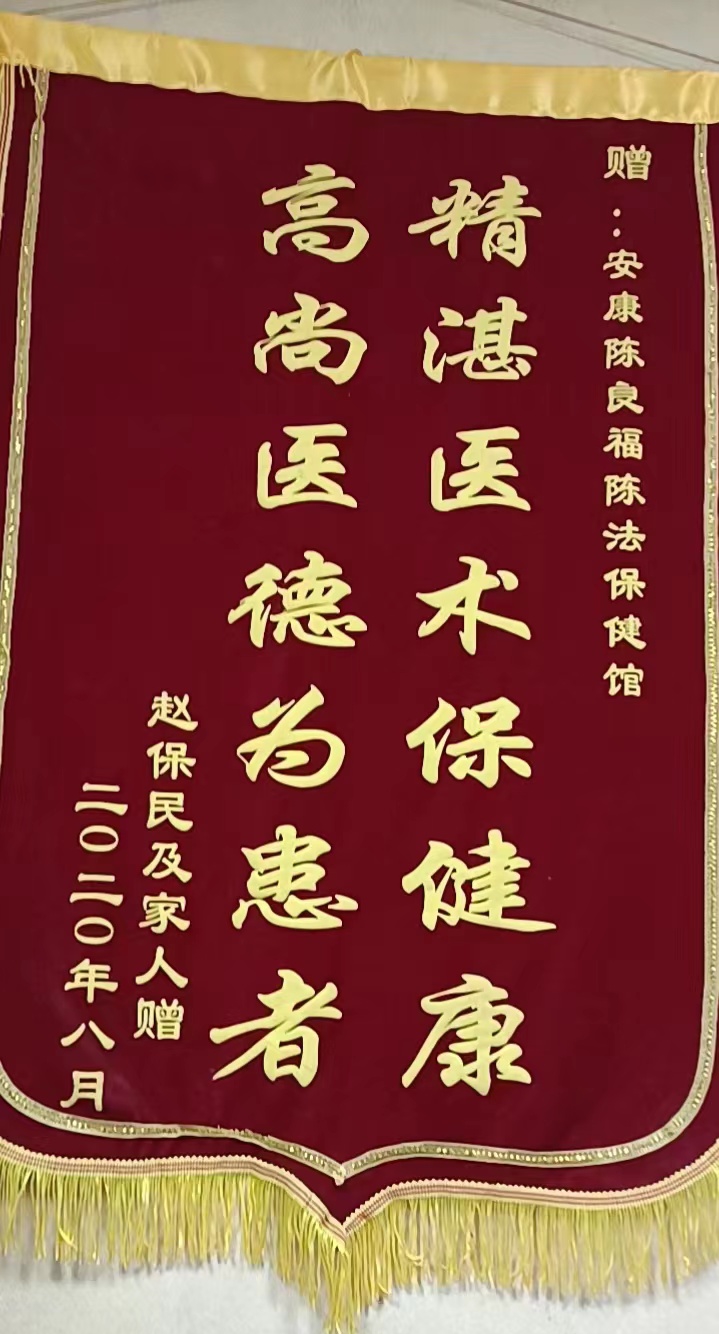 赠：安康陈良福陈法保健馆
精湛医术保健康
高尚医德为患者
赵保民及家人赠
二〇二〇年八月